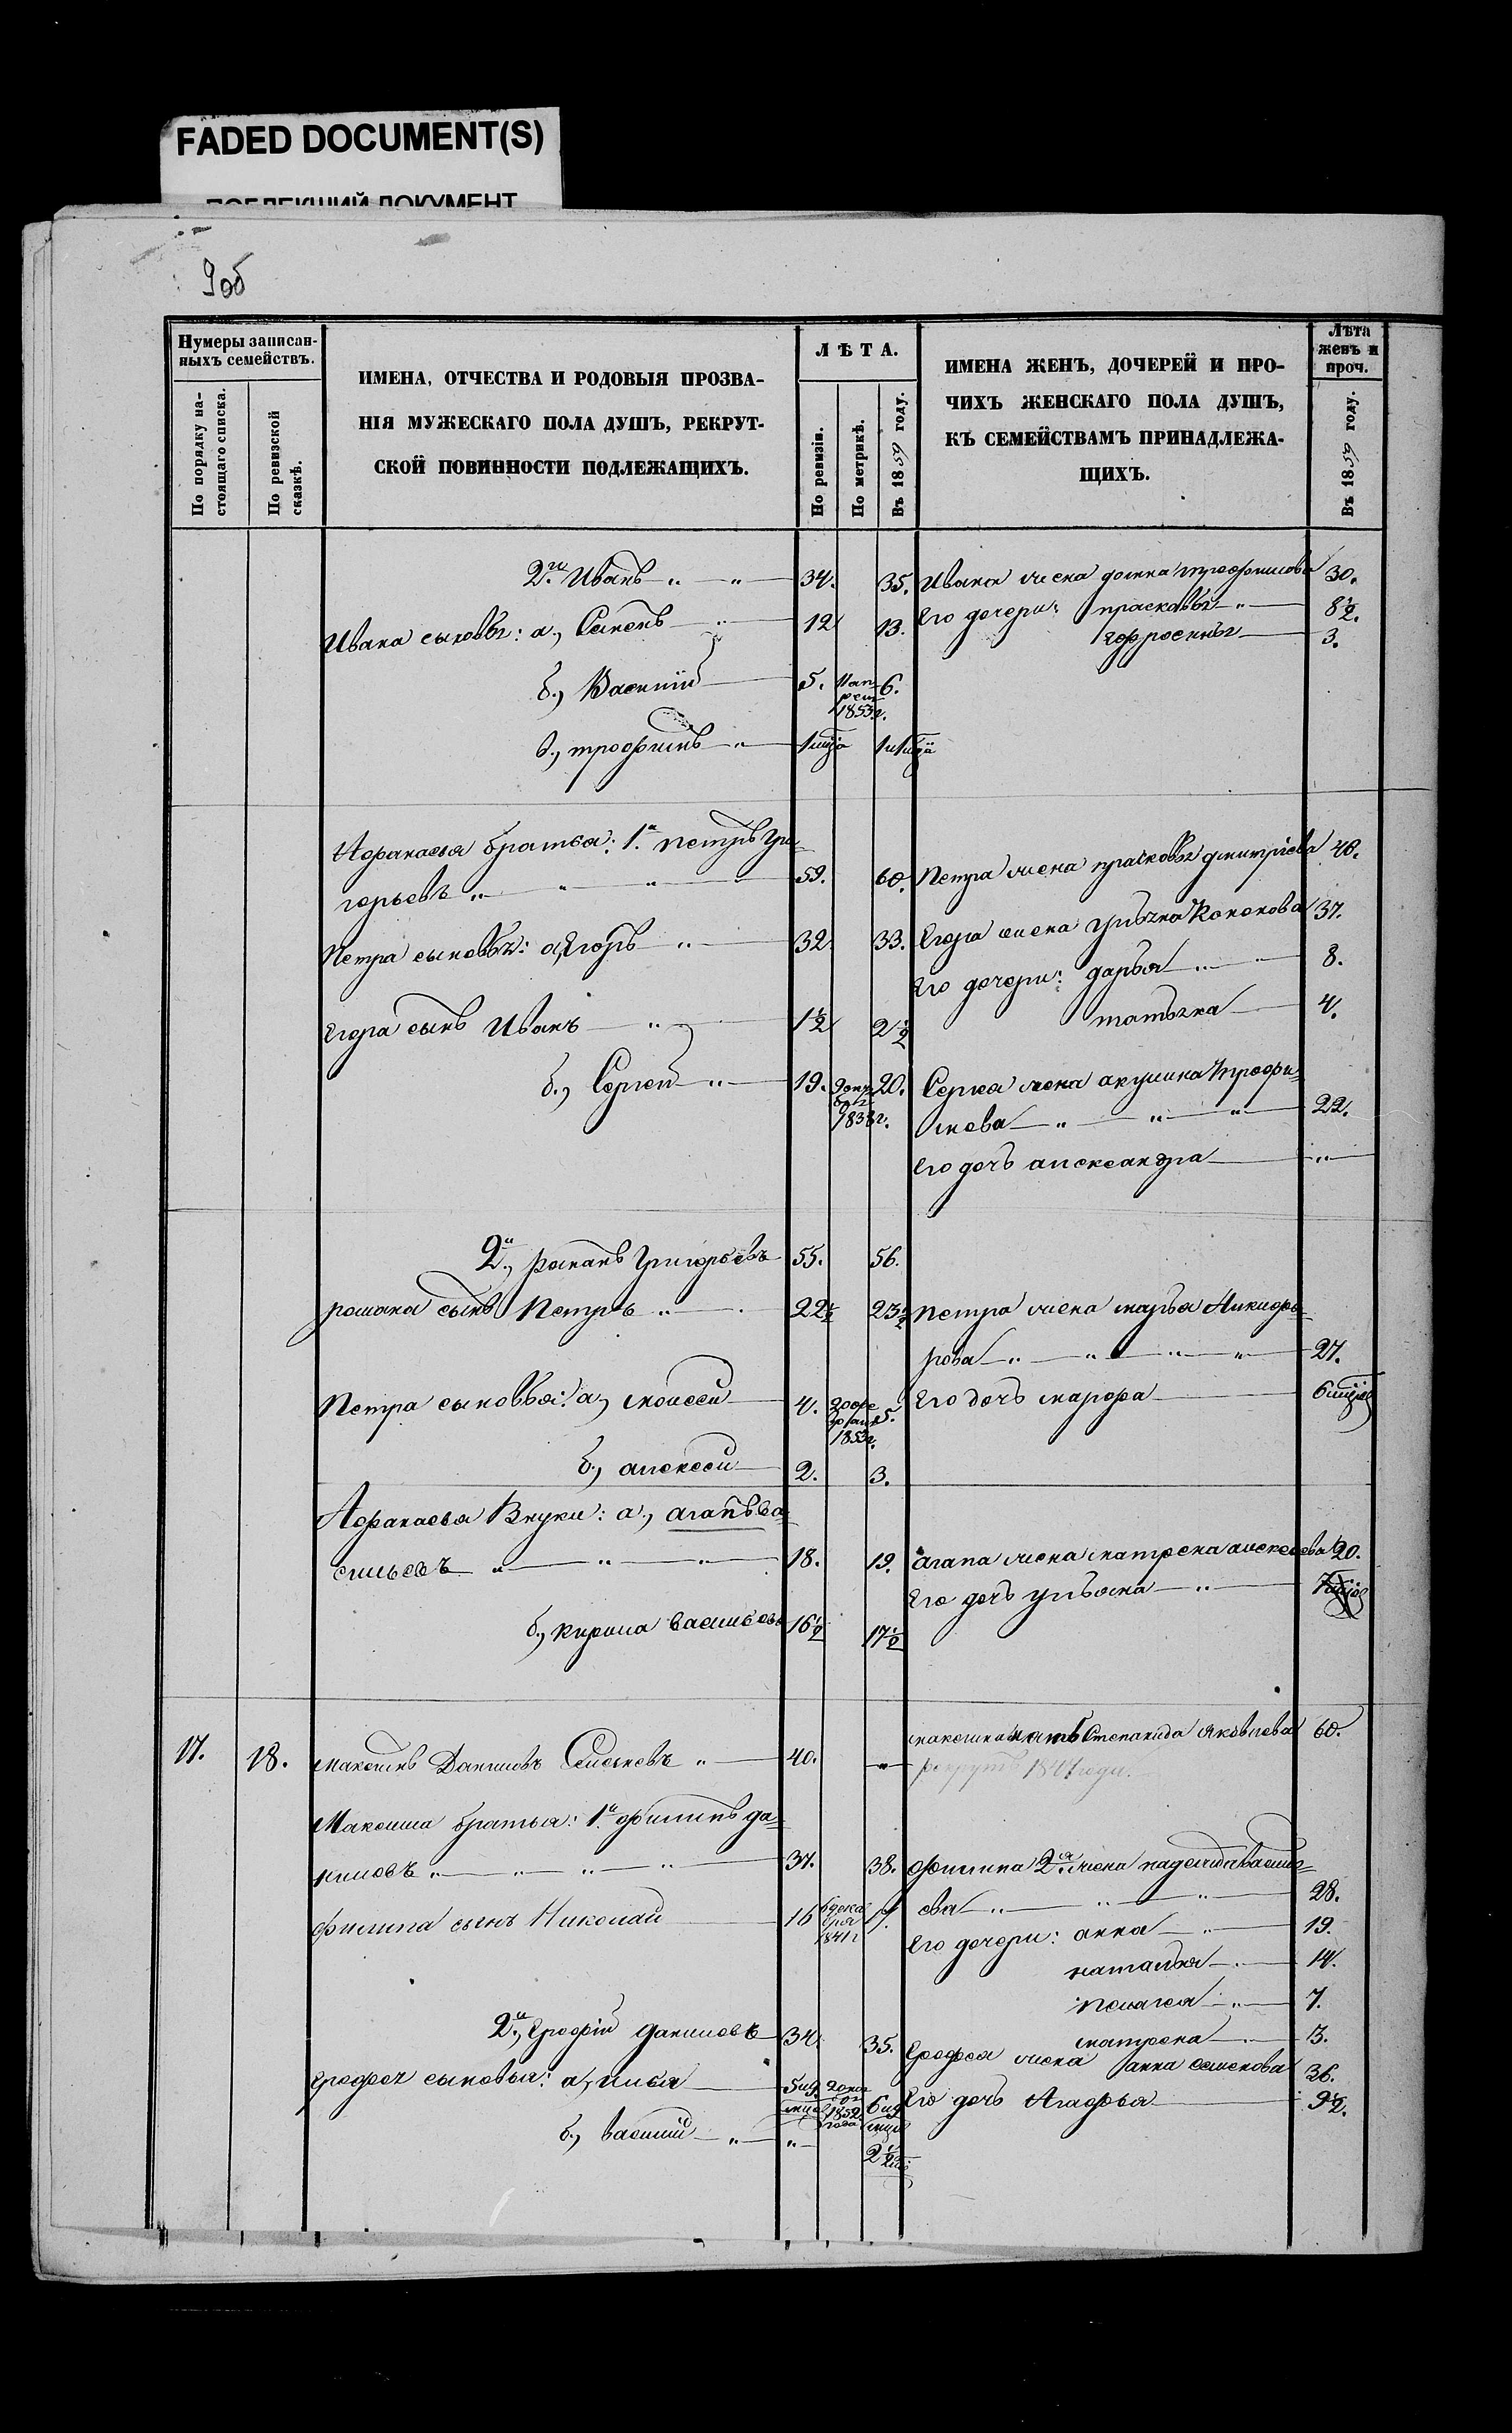 FADED DOCUMENT(S)
ПОБЛЕКШИЙ ДОКУМЕНТ
9об
Нумеры записан-
ныхъ семействъ.
По порядку на-
стоящаго списка.
По ревизской
сказкѣ.
ИМЕНА, ОТЧЕСТВА И РОДОВЫЯ ПРОЗВА-
НІЯ МУЖЕСКАГО ПОЛА ДУШЪ, РЕКРУТ-
СКОЙ ПОВИННОСТИ ПОДЛЕЖАЩИХЪ.
ЛѢТА.
По ревизіи.
По метрикѣ.
Въ 1859 году.
ИМЕНА ЖЕНЪ, ДОЧЕРЕЙ И ПРО-
ЧИХЪ ЖЕНСКАГО ПОЛА ДУШЪ,
КЪ СЕМЕЙСТВАМЪ ПРИНАДЛЕЖА-
ЩИХЪ.
Лѣта
женъ и
проч.
Въ 1859 году.
2й Иванъ „ „ 34. 35. Ивана жена домна трофимова 30.
Ивана сыновья: а, Семенъ „ 12 13. Его дочери: прасковья „ 8½.
Ефросинья 3.
б., Василій 5. 1853г. 6.
в., трофимъ „
Афанасья братья: 1й петръ Гри-
горьевъ „ „ „ 59. 60. Петра жена прасковья дмитріева 48.
Петра сыновья: а, Егоръ „ 32 33. Егора жена ульяна Кононова 37.
Его дочери: дарья „ „ 8.
Егора сынъ Иванъ „ 1½ 2½ татьяна 4.
б., Сергей „ 19. 1838г. 20. Сергея жена акулина трофи-
мова „ „ „ 22.
Его дочь александра „
2й, романъ Григорьевъ 55. 56.
романа сынъ Петръ „ 22½ 23½ петра жена марья Никифо-
рова „ „ „ „ 27.
Петра сыновья: а, моисей 4. 1853г. 5. Его дочь марфа 6
б., алексей 2. 3.
Афанасья Внуки: а., агапъ ва-
сильевъ „ „ „ 18. 19. агапа жена матрена алексеева 20.
Его дочь ульяна „ 7
б, кирила васильевъ 16½ 17½
17. 18. максимъ Даниловъ Семеновъ „ 40. „ максима мать Степанида яковлева 60.
рекрутъ 1847 года.
Максима братья: 1й филипъ да-
ниловъ „ „ „ „ 37. 38. филипа 2я жена надежда василь-
ева „ „ „ 28.
филипа сынъ Николай 16 6 дека
бря
1841г Его дочери: анна „ 19.
наталья „ 14.
пелагея „ 7.
матрена 3.
2й, Ерофѣй даниловъ 34. 35. Ерофея жена анна семенова 36.
Ерофея сыновья: а, илья 5 1852 года 6 Его дочь Агафья 9½.
б., василий „ „ 2½